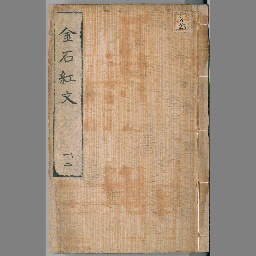 金石紅文
一、二